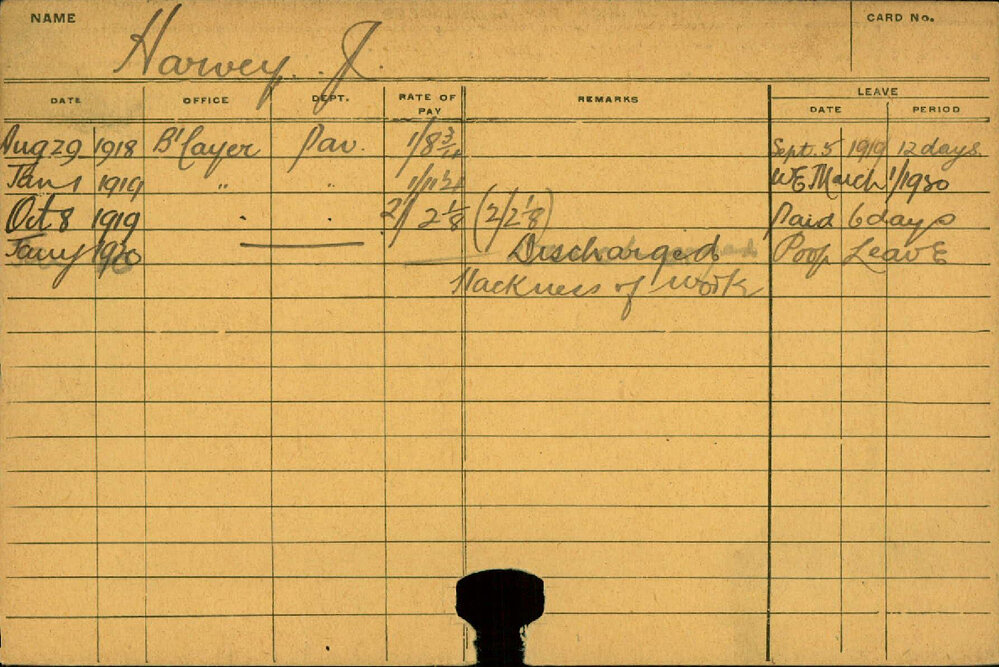 NAME Harvey. J. CARD No.
DATE OFFICE DEPT. RATE OF PAY REMARKS LEAVE
DATE PERIOD
Aug 29 1918 B'layer Pav. 1/8 3/4 Sept. 5 1919 12 days
Jan 1 1919 " " WE March 1/1920
Oct 8 1919 2/ 2 1/8 (2/2 1/8) Paid 6 days
Jany 1920 Discharged Prop Leave
Slackness of work